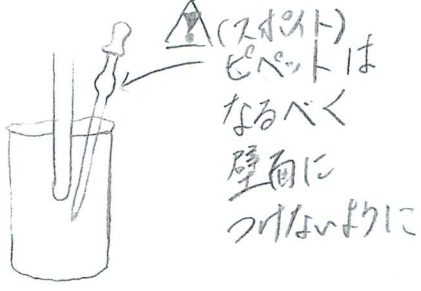 (スポイト)
ピペットは
なるべく
壁面に
つけないように